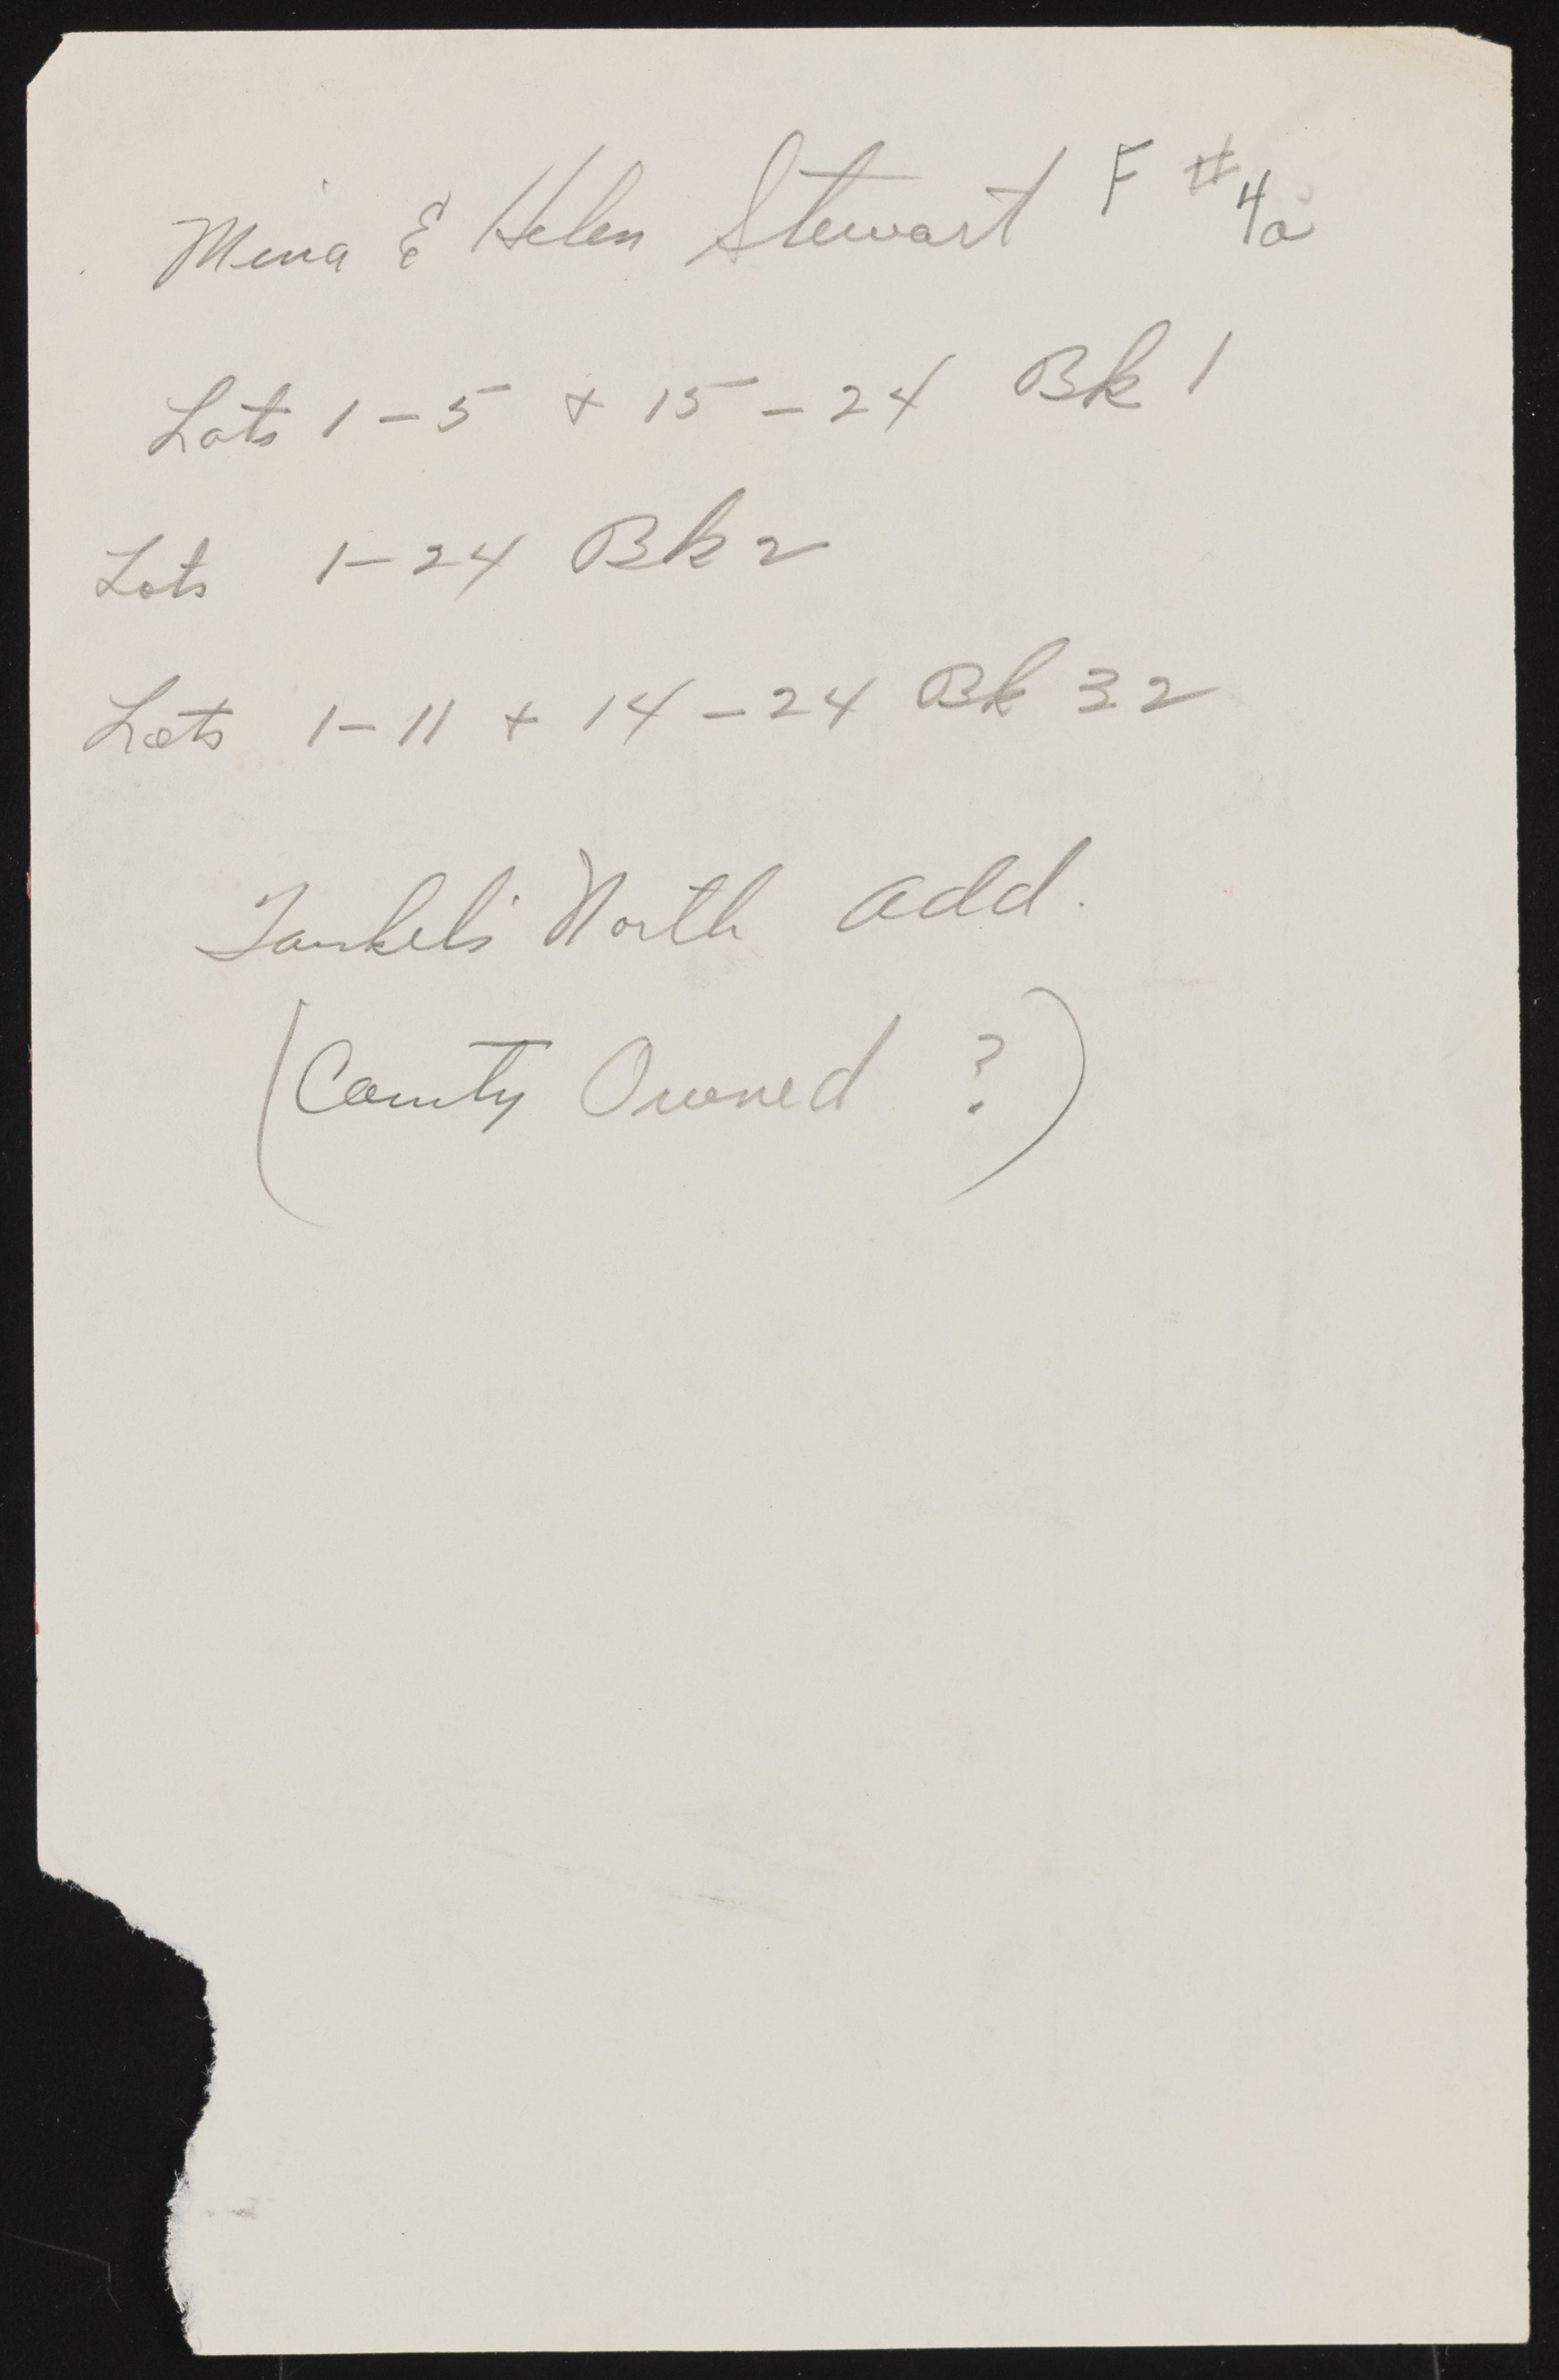 Mina & Helen Stewart F #4a
Lots 1-5 + 15-24 Bk 1
Lots 1-24 Bk 2
Lots 1-11 + 14-24 Bk 32
North add.
(County Owned ?)